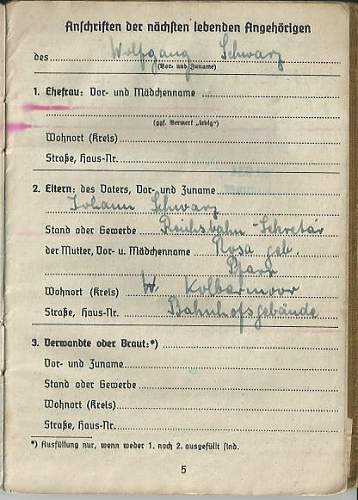 Anschriften der nächsten lebenden Angehörigen
des Wolfgang Schwarz
(Vor- und Zuname)
1. Ehefrau: Vor- und Mädchenname
(ggf. Vermerk „ledig“)
Wohnort (Kreis)
Straße, Haus-Nr.
2. Eltern: des Vaters, Vor- und Zuname
Johann Schwarz
Stand oder Gewerbe Reichsbahn-Sekretär
der Mutter, Vor- u. Mädchenname Rosa geb.
Wohnort (Kreis) Kolbermoor
Straße, Haus-Nr. Bahnhofsgebäude
3. Verwandte oder Braut:*)
Vor- und Zuname
Stand oder Gewerbe
Wohnort (Kreis)
Straße, Haus-Nr.
*) Ausfüllung nur, wenn weder 1. noch 2. ausgefüllt sind.
5